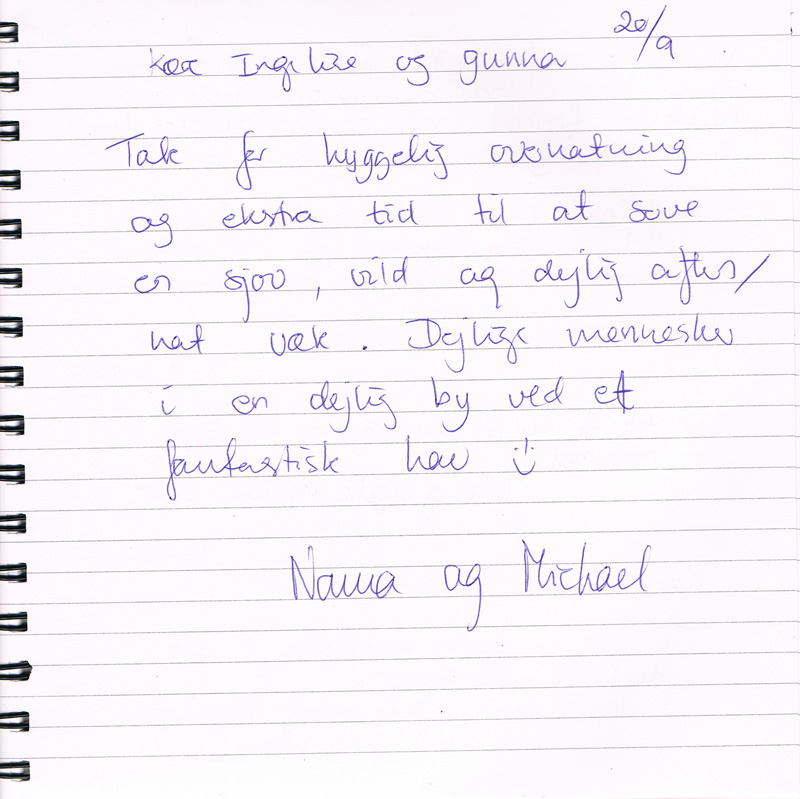 20/9
Kær Ingelise og gunna
Tak for hyggelig overnatning
og ekstra tid til at sove
en sjov, vild og dejlig aften/
nat væk. Dejlige mennesker
i en dejlig by ved et
fantastisk hav :)
Nanna og Michael